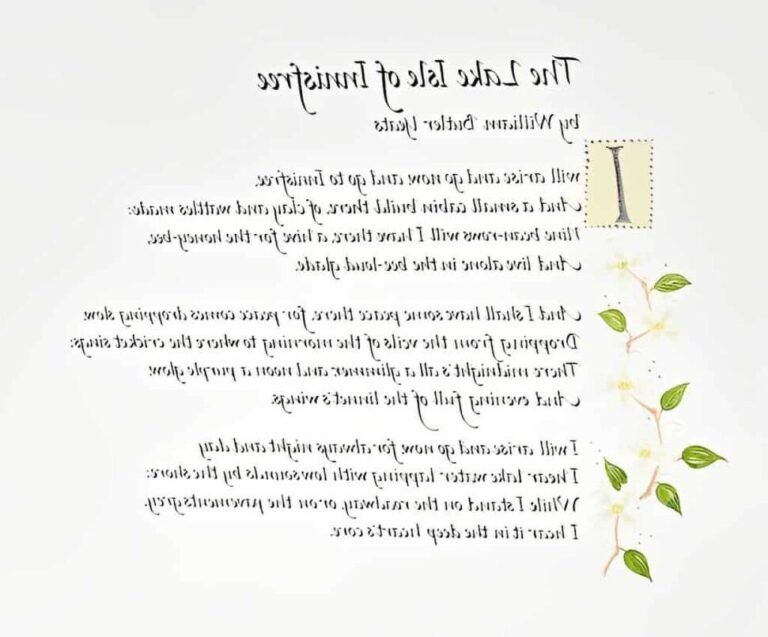 The Lake Isle of Innisfree
by William Butler Yeats
I will arise and go now, and go to Innisfree,
And a small cabin build there, of clay and wattles made:
Nine bean-rows will I have there, a hive for the honey-bee,
And live alone in the bee-loud glade.
And I shall have some peace there, for peace comes dropping slow,
Dropping from the veils of the morning to where the cricket sings;
There midnight's all a glimmer, and noon a purple glow,
And evening full of the linnet's wings.
I will arise and go now, for always night and day
I hear lake water lapping with low sounds by the shore;
While I stand on the roadway, or on the pavements grey,
I hear it in the deep heart's core.